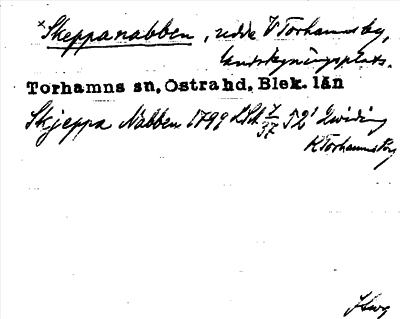 *Skeppanabben, udde V Torhamnsby,
landstigningsplats.
Torhamns sn, Östra hd, Blek. län
Skjeppa Nabben 1799 LSA 7/37 f 2
K Torhamns by